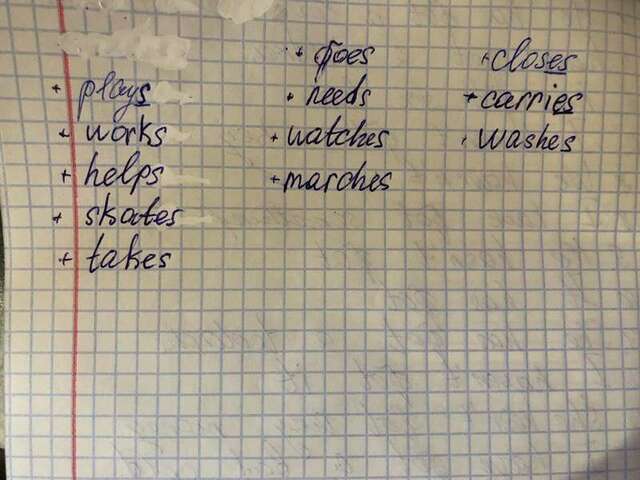 + plays
+ works
+ helps
+ skates
+ takes
+ goes
+ needs
+ watches
+ marches
+ closes
+ carries
+ washes